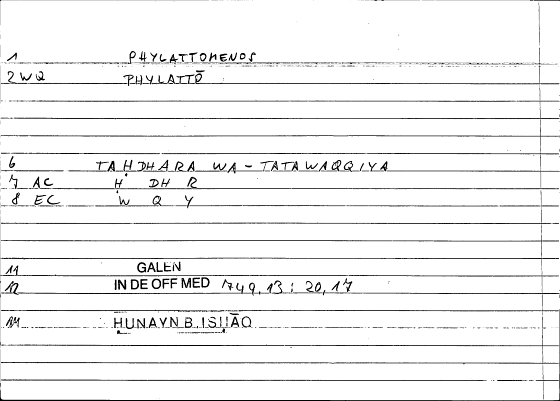 1 PHYLATTOMENOS
2 WQ PHYLATTŌ
6 TAḤDHARA WA-TATAWAQQIYA
7 AC Ḥ DH R
8 EC W Q Y
11 GALEN
12 IN DE OFF MED 749,13 : 20,17
14 ḤUNAYN B. ISḤĀQ